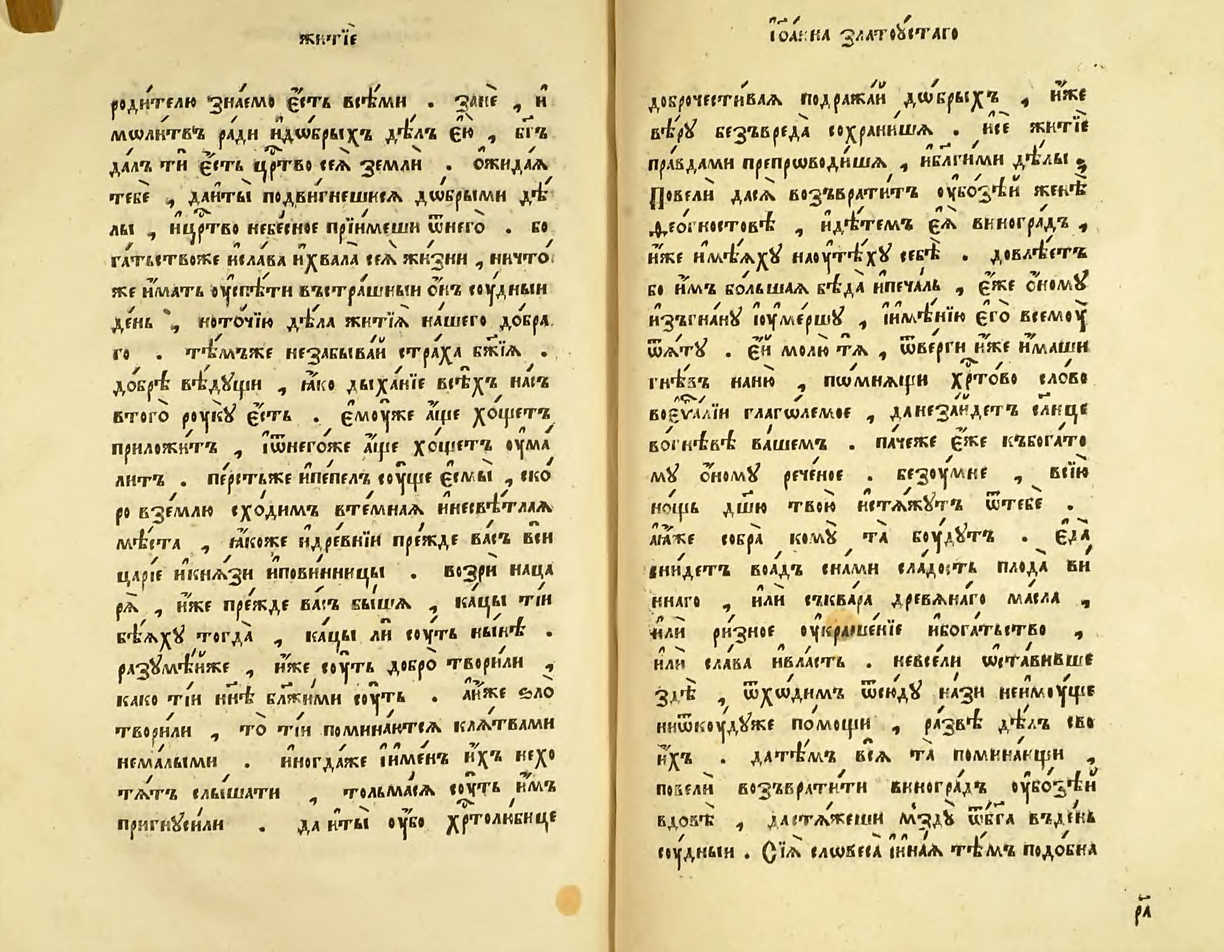 житїѐ
роди́телю зна́емо є҆́сть все́ми . занѐ , и҆
мѡли́твъ ра́ди и҆дѡ́брыхъ дѣ́лъ є҆ю̀ , бг҃ъ
да́лъ тѝ є҆́сть црⷭ҇тво сеѧ̀ землѝ . ѻ҆жида́ѧ
тебѐ , даи҆ты̀ подви́гнешисѧ дѡ́брыми дѣ́
лы , и҆црⷭ҇тво небе́сное прїи́меши ѿнегѡ̀ . бо
га́тьствоже и҆сла́ва и҆хвала̀ сеѧ̀ жи́зни , ничто́
же и҆́мать ᲂу҆спѣ́ти въстра́шныи ѻ҆́нъ сꙋ́дныи
де́нь , нотѡ́чїю дѣла̀ житїѧ̀ на́шего до́бра
го . тѣ́мъже незабыва́й стра́ха бж҃їѧ .
до́брѣ вѣ́дꙋщи , ꙗ҆́ко дыха́нїе всѣ́хъ на́съ
втогѡ̀ рꙋкꙋ̀ є҆́сть . є҆мꙋ́же а҆́ще хо́щетъ
приложи́тъ , і҆ѿнегѡ́же а҆́ще хо́щетъ ᲂу҆ма́
литъ . пе́рстьже и҆пе́пелъ сꙋ́ще є҆смы̀ , ско́
ро вземлю̀ схо́димъ вте́мнаѧ и҆несвѣ́тлаѧ
мѣ́ста , ꙗ҆́коже и҆дре́внїи пре́жде ва́съ вси
ца́рїе и҆кнѧ́зи и҆пови́нницы . возрѝ наца
рѧ̀ , и҆́же пре́жде ва́съ бы́шѧ , ка́цы тїи
бѣ́ѧхꙋ тогда̀ , ка́цы ли сꙋ́ть ны́нѣ .
разꙋмѣ́йже , и҆́же сꙋ́ть добрѡ̀ твори́ли ,
како тїи нн҃ѣ бл҃же́ними сꙋ́ть . а҆и҆́же ѕло̀
твори́ли , то̀ тїи помина́ютсѧ клѧ́твами
нема́лыми . и҆ногда́же і҆и҆ме́нъ и҆́хъ нехо
тѧ́тъ слы́шати , то́льмасѧ сꙋ́ть и҆́мъ
пригнꙋси́ли . да и҆ты̀ ᲂу҆́бо хрⷭ҇толю́бице
і҆ѡа́нна златоꙋ́стаго
доброчести́ваѧ подража́й дѡ́брыхъ , и҆́же
вѣ́рꙋ безъвреда̀ сохрани́шѧ . и҆сѐ житїѐ
пра́вдами препрѡводи́шѧ , и҆бл҃ги́ми дѣ́лы ,
Повели̂ дасѧ̀ возъврати́тъ ᲂу҆бо́зѣй женѣ̀
ѳео́гностовѣ , и҆дѣ́темъ є҆ѧ̀ виногра́дъ ,
и҆́же и҆мѣ́ѧхꙋ наᲂу҆тѣ́хꙋ себѣ̀ . довлѣ́етъ
бо и҆́мъ бо́льшаѧ бѣда̀ и҆печа́ль , є҆́же ѻ҆́номꙋ
и҆зъгна́нꙋ і҆ᲂу҆ме́ршꙋ , і҆и҆мѣ́нїю є҆гѡ̀ всемꙋ̀
ѿѧ́тꙋ . є҆й молю́ тѧ , ѿве́рги и҆́же и҆́маши
гнѣ́въ наню̀ , пѡмнѧ́щи хрⷭ҇то́во сло́во
воє҆ѵⷢ҇лїи глаго́лемое , данеза́йдетъ сл҃нце
во́гнѣвѣ ва́шемъ . па́чеже є҆́же къбога́то
мꙋ ѻ҆́номꙋ рече́ное . безꙋ́мне , всїю̀
но́щь дш҃ю твою̀ и҆стѧ́жꙋтъ ѿтебѐ .
ꙗ҆́же собра̀ комꙋ̀ та̀ бꙋ́дꙋтъ . є҆да̀
сни́детъ воа́дъ сна́ми сла́дость плода̀ ви
ннаго , и҆лѝ съква́ра древѧ́наго ма́сла ,
и҆лѝ ри́зное ᲂу҆краше́нїе и҆бога́тьство ,
и҆лѝ сла́ва и҆вла́сть . невселѝ ѡ҆ста́вивше
здѣ̀ , ѿхѡ́димъ ѿсю́дꙋ на́зи неи҆мꙋ́ще
ниѿкꙋ́дꙋже по́мощи , ра́звѣ дѣ́лъ сво
и҆́хъ . датѣ́мъ всѧ̀ та̀ помина́ющи ,
повелѝ возъврати́ти виногра́дъ ᲂу҆бо́зѣй
вдовѣ̀ , дастѧ́жеши мздꙋ̀ ѿбг҃а въде́нь
сꙋ́дныи . Сїѧ̀ словеса̀ і҆и҆на́ѧ тѣ́мъ подо́бна
рл҃